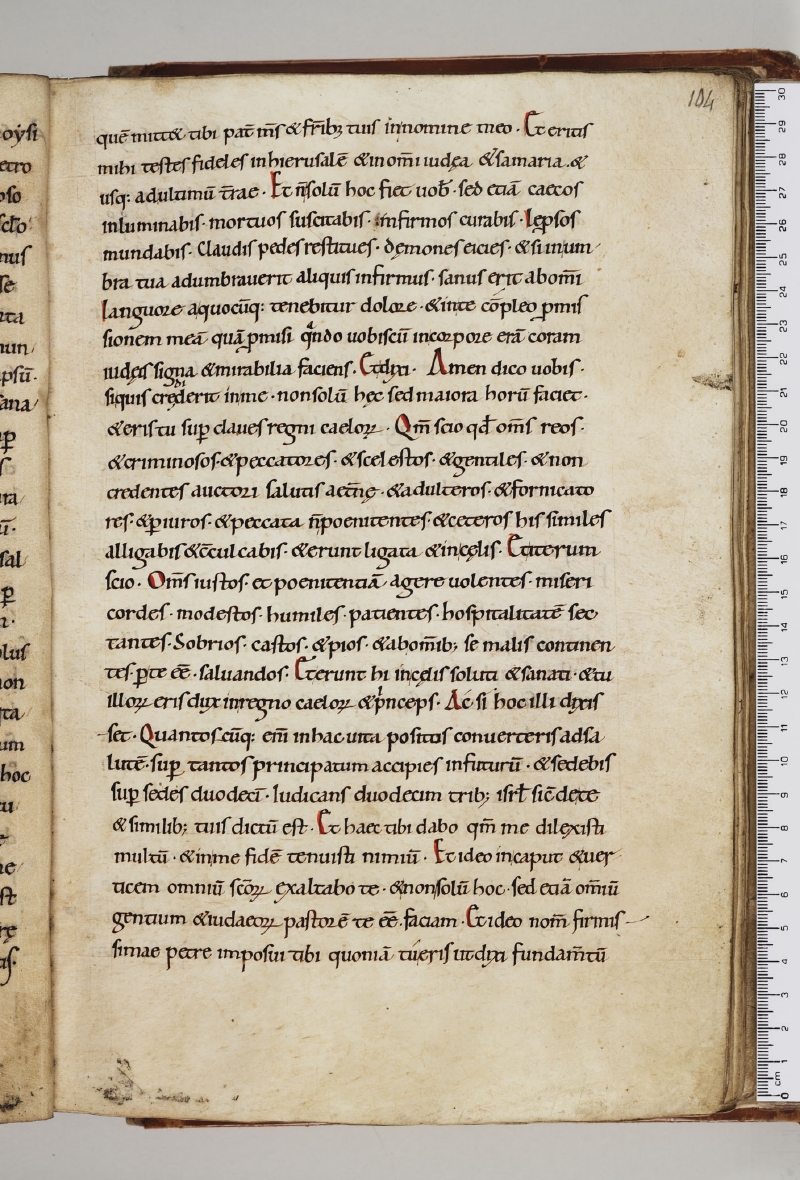 104
quē mitt& tibi pat̄ m̄s & fr̄ib; tuis innomine meo · Et eritis
mihi testes fideles inhierusalē & inom̄i iudęa & samaria · &
usq: adultimū t̄rae · Et n̄solū hoc fiet uob̄ · sed etiā caecos
inluminabis · mortuos suscitabis · infirmos curabis · lępsos
mundabis · Claudis pedes restitues · dęmones eicies · & si inum
bra tua adumbrauerit aliquis infirmus · sanus erit abom̄i
languore aquocūq: tenebitur dolore · & inte cōpleo ꝓmis
sionem meā quā ꝓmisi qn̄do uobiscū incorpore erā coram
iudęis signa & mirabilia faciens · Et dixi · Amen dico uobis ·
siquis crediderit inme · nonsolū hęc sed maiora horū faciet ·
& eris tu sup̄ claues regni caeloꝝ · Qm̄ scio qd̄ om̄s reos ·
& criminosos · & peccatores · & scelestos · & gentiles · & non
credentes auctori salutis aet̄nę · & adulteros · & fornicato
res · & ꝑiuros · & peccata n̄poenitentes · & ceteros his similes
alligabis & c̄culcabis · & erunt ligata & incęlis · Et iterum
scio · Om̄s iustos · et poenitentiā agere uolentes · miseri
cordes · modestos · humiles · patientes · hospitalitatē sec
tantes · Sobrios · castos · & pios · & abom̄ib; se malis continen
tes · ꝑte eē · saluandos · Et erunt hi incęlis soluti & sanati · & tu
illoꝝ eris dux inregno caeloꝝ & pͥnceps · Ac si hoc illi dixis
set · Quantoscūq: em̄ inhac uita positos conuerteris adsa
lutē · sup̄ tantos principatum accipies infuturū · & sedebis
sup̄ sedes duodeci · Iudicans duodecim trib; isrl̄ sic̄ de te
& similib; tuis dictū est · Et haec tibi dabo qm̄ me dilexisti
multū · & inme fidē tenuisti nimiū · Et ideo incaput & uer
ticem omniū sc̄oꝝ exaltabo te · & nonsolū hoc · sed etiā omīū
gentium & iudaeoꝝ pastorē te eē · faciam · Et ideo nom̄ firmis
simae petre imposui tibi quoniā tu eris ut dixi fundam̄tū